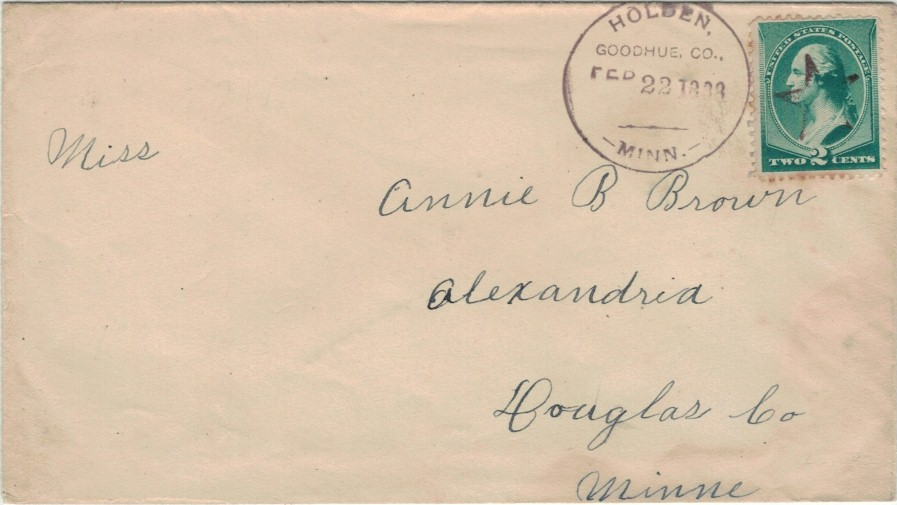 HOLDEN,
GOODHUE, CO.,
FEB 22 1888
MINN.
UNITED STATES POSTAGE
TWO 2 CENTS
Miss
Annie B Brown
Alexandria
Douglas Co
Minne